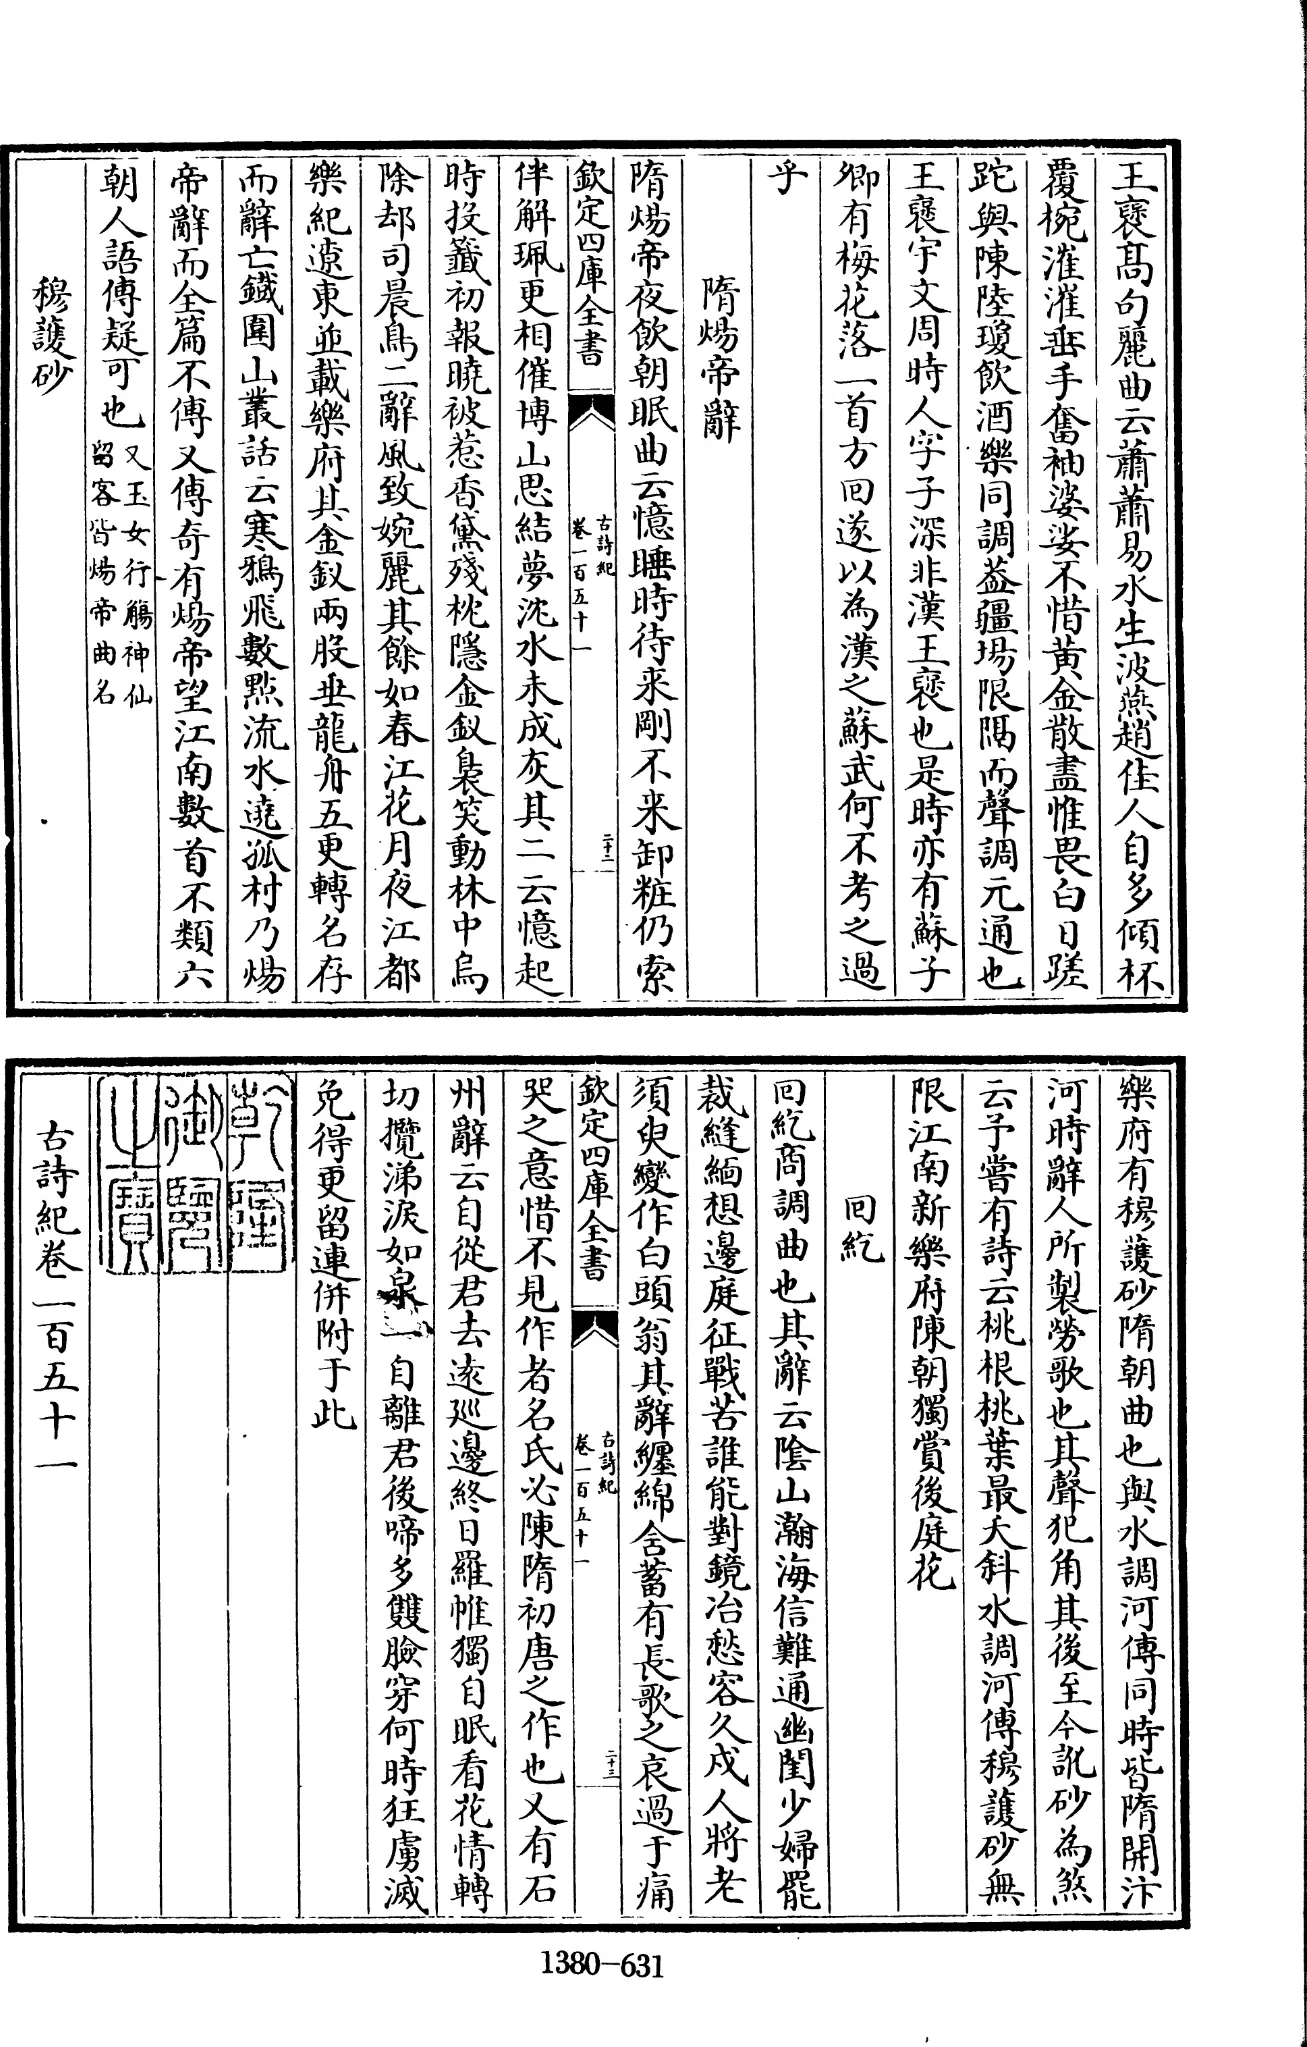 王襃髙句麗曲云蕭蕭易水生波燕趙佳人自多傾杯
覆椀漼漼垂手奮袖婆娑不惜黄金散盡惟畏白日蹉
跎與陳陸瓊飲酒樂同調葢疆埸限隔而聲調元通也
王襃宇文周時人字子深非漢王襃也是時亦有蘇子
卿有梅花落一首方回遂以為漢之蘇武何不考之過
乎
隋煬帝辭
隋煬帝夜飲朝眠曲云憶睡時待来剛不来卸粧仍索
欽定四庫全書
古詩紀
卷一百五十一
二十二
伴解珮更相催博山思結夢沈水未成灰其二云憶起
時投籤初報曉被惹香黛殘枕隱金釵裊笑動林中烏
除却司晨鳥二辭風致婉麗其餘如春江花月夜江都
樂紀遼東並載樂府其金釵兩股垂龍舟五更轉名存
而辭亡鐵圍山叢話云寒鴉飛數點流水遶孤村乃煬
帝辭而全篇不傳又傳奇有煬帝望江南數首不類六
朝人語傳疑可也又玉女行觴神仙
留客皆煬帝曲名
穆護砂
樂府有穆護砂隋朝曲也與水調河傳同時皆隋開汴
河時辭人所製勞歌也其聲犯角其後至今訛砂為煞
云予嘗有詩云桃根桃葉最夭斜水調河傳穆護砂無
限江南新樂府陳朝獨賞後庭花
回紇
回紇商調曲也其辭云陰山瀚海信難通幽閨少婦罷
裁縫緬想邊庭征戰苦誰能對鏡冶愁容久戍人將老
須臾變作白頭翁其辭纒綿含蓄有長歌之哀過于痛
欽定四庫全書
古詩紀
卷一百五十一
二十三
哭之意惜不見作者名氏必陳隋初唐之作也又有石
州辭云自從君去逺廵邊終日羅帷獨自眠看花情轉
切攬涕淚如泉一自離君後啼多雙臉穿何時狂虜滅
免得更留連併附于此
乾隆
御覽
之寶
古詩紀卷一百五十一
1380-631